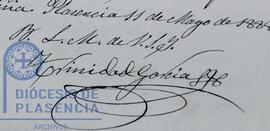 Plasencia 11 de Mayo de 188
B. L. M. de V. S. Y.
Trinidad García
DIÓCESIS DE
PLASENCIA
ARCHIVOS